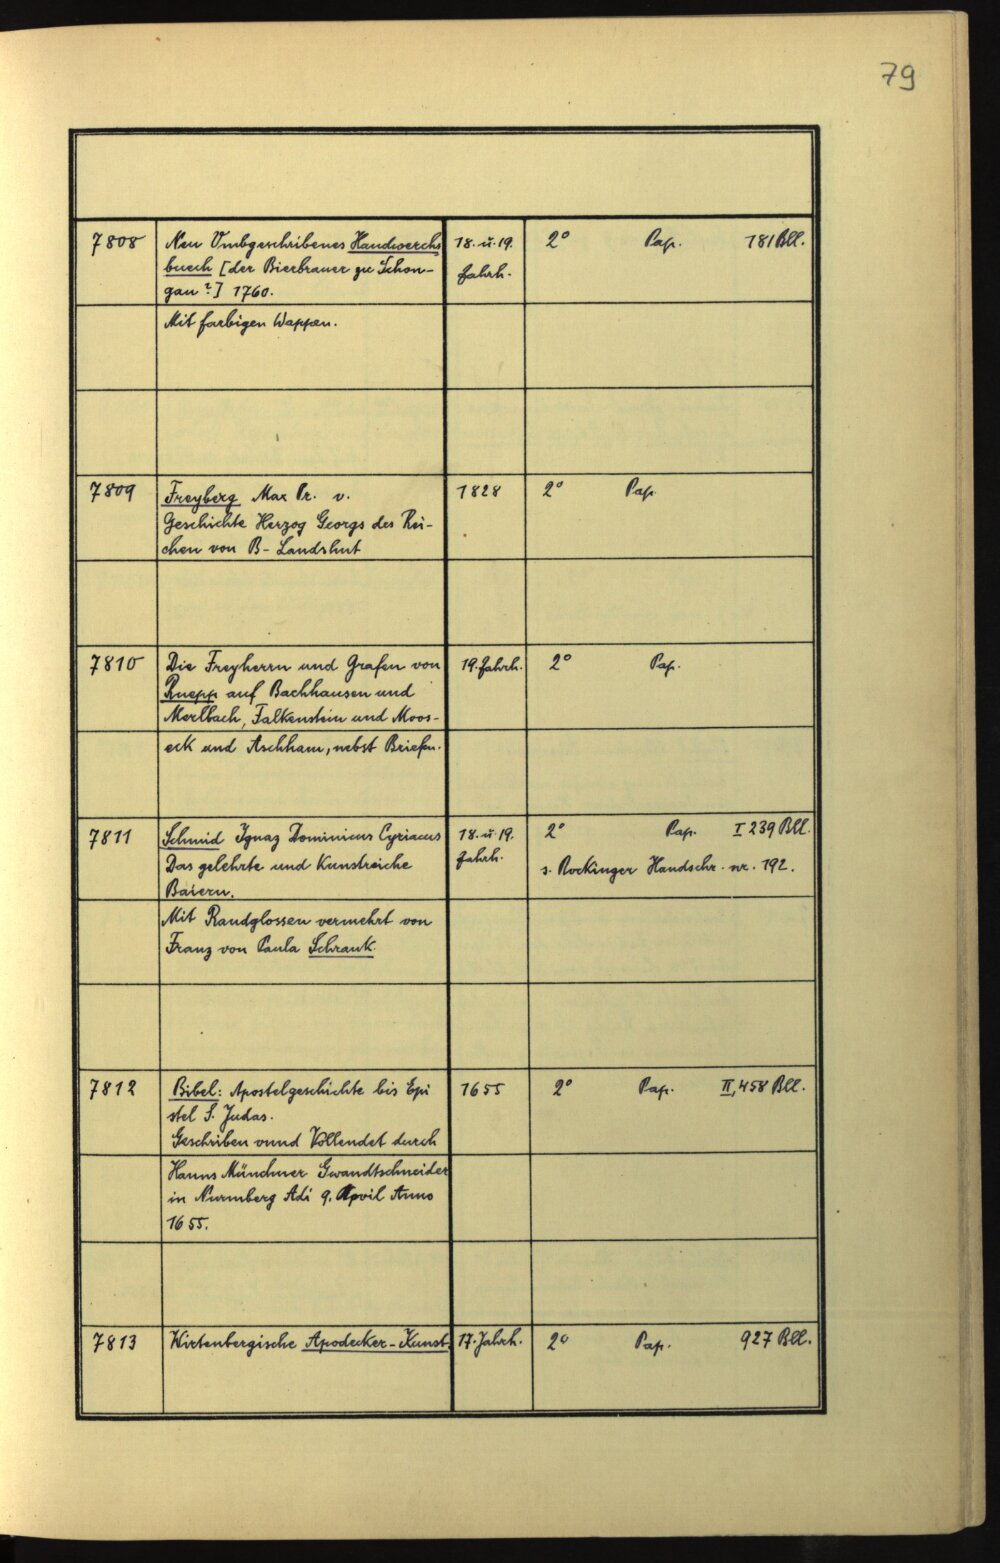 79
7808 Neu Vmbgeschribenes Handwerchs 18. u. 19. 2° Pap. 181 Bll.
buech [der Bierbrauer zu Schon- Jahrh.
gau?] 1760.
Mit farbigen Wappen.
7809 Freyberg Max Pr. v. 1828 2° Pap.
Geschichte Herzog Georgs des Rei-
chen von B-Landshut
7810 Die Freyherrn und Grafen von 19. Jahrh. 2° Pap.
Ruepp auf Bachhausen und
Merlbach, Falkenstein und Moos-
eck und Aschham, nebst Briefen.
7811 Schmid Ignaz Dominicus Cyriacus 18. u. 19. 2° Pap. I 239 Bll.
Das gelehrte und Kunstreiche Jahrh. s. Rockinger Handschr. nr. 192.
Baiern.
Mit Randglossen vermehrt von
Franz von Paula Schrank.
7812 Bibel: Apostelgeschichte bis Epi 1655 2° Pap. II, 458 Bll.
stel S. Judas.
Geschriben vnnd Vollendet durch
Hanns Münchner Gwandtschneider
in Nurmberg Adi 9. April Anno
1655.
7813 Wirtenbergische Apodecker-Kunst. 17. Jahrh. 2° Pap. 927 Bll.